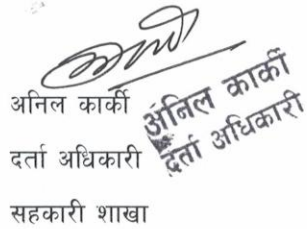 अनिल कार्की
दर्ता अधिकारी
सहकारी शाखा
अनिल कार्की
दर्ता अधिकारी